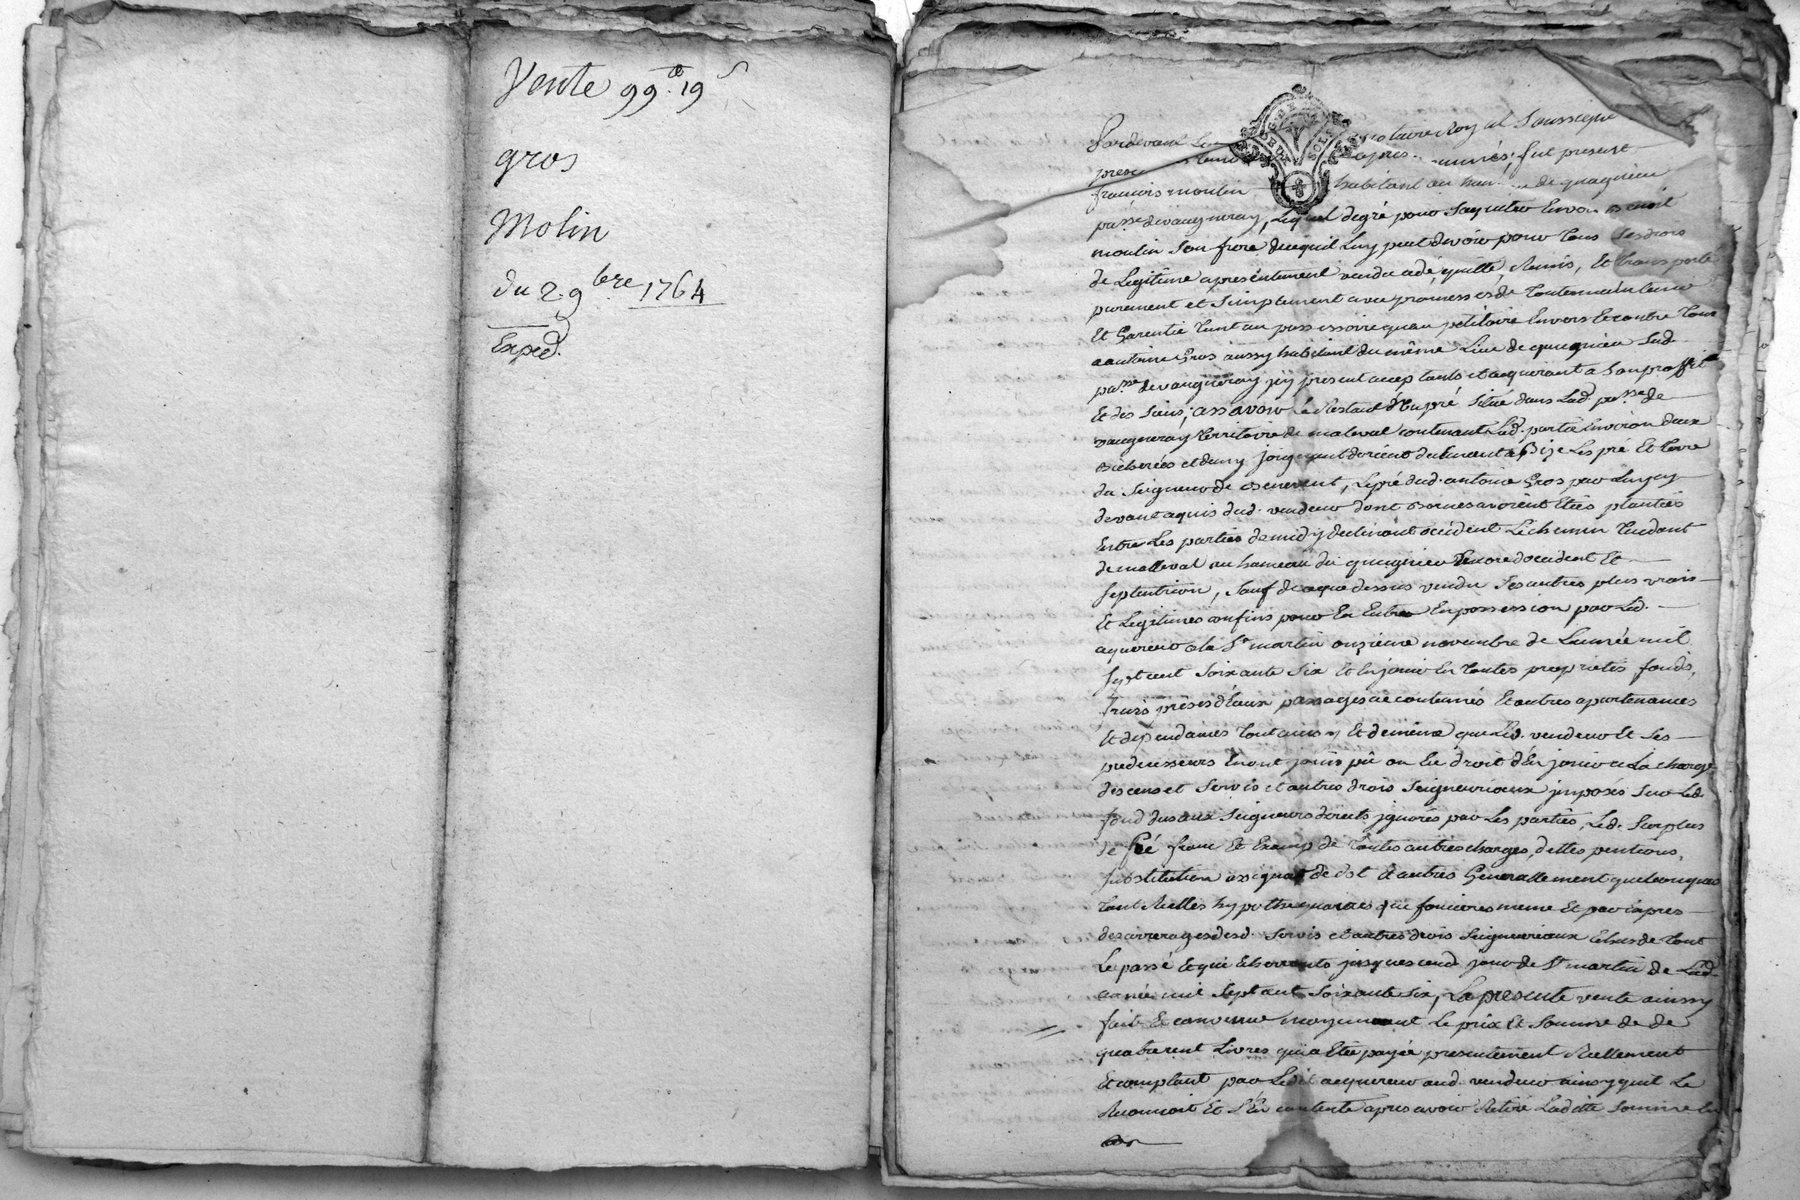 Vente 99.tt 19s
gros
Molin
du 2. 9bre 1764
Exped.
Pardevant Le notaire Royal Soussigné
presents fut present
francois moulin habitant au de quagnieu
passe devaugneray, Lequel degré pour Saquitter Envers
moulin Son frere dece quil Luy peut devoir pour tous Ses drois
de Legitime apresentement vendu cedé quitté, Remis, Et transporté
purement et Simplement avec promesses de toute maintenue
Et Garentie tant au possessoire quau petitoire Envers Et contre tous
a antoine Gros aussy habitant du même Lieu de quagnieu Lad.
passe devaugneray jcy present acceptants et aquerant a Son proffit
Et des Siens, assavoir Le Restant d'Un pré Situé dans Lad. passe de
vaugneray territoire de maleval contenant Lad. partie Environ deux
bicherées et demy joignant dorient declinant a Bize Les pré Et terre
du Seigneur de benevent, Le pré dud. antoine Gros par Luy cy
devant aquis dud. vendeur dont bornes avoient Etées plantées
Entre Les parties de midy declinant occident Le chemin tendant
de malleval au hameau du quagnieu Encore doccident Et
Septentrion, Sauf de ce que dessus vendu Ses autres plus vrais
Et Legitimes confins pour En Entrer En possession par Led.
aquereur a la St martin onzieme novembre de Lannée mil
Sept cent Soixante Six Et En jouir En toutes proprietés fonds,
fruis prises d'Eaux passages accoutumés Et autres apartenances
Et dependances tout ainsy Et de meme que Led. vendeur Et Ses
predecesseurs En ont jouis pû ou Eu droit d'En jouir a La charge
des cens et Servis et autres drois Seigneuriaux jmposés Sur Led.
fond dus aux Seigneurs directs jgnorés par Les parties, Led. Surplus
de pré franc Et Exemp de toutes autres charges, dettes pentions,
Substitution assignat de dot Et autres Generallement quelconques
tant Reelles hypothequaires que foncieres meme Et par Expres
des arrerages desd. Servis et autres drois Seigneuriaux Echus de tout
Le passé Et qui Echerronts jusques aud. jour de St martin de Lad.
année mil Sept cent Soixante Six, La presente vente ainsy
faite Et convenue moyenant Le prix Et Somme de de
quatre cent Livres qui a Etée payée presentement Reellement
Et comptant par Ledit aquereur aud. vendeur ainsy quil Le
Reconnoit Et S'En contente apres avoir Retiré Laditte Somme En